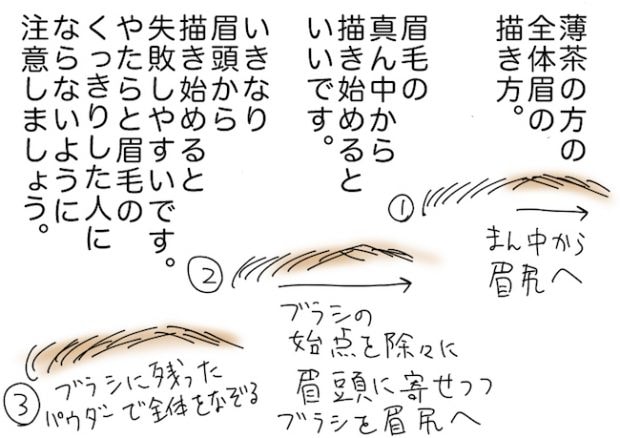 薄茶の方の
全体眉の
描き方。
眉毛の
真ん中から
描き始めると
いいです。
いきなり
眉頭から
描き始めると
失敗しやすいです。
やたらと眉毛の
くっきりした人に
ならないように
注意しましょう。
①
まん中から
眉尻へ
②
ブラシの
始点を除々に
眉頭に寄せつつ
ブラシを眉尻へ
③
ブラシに残った
パウダーで全体をなぞる